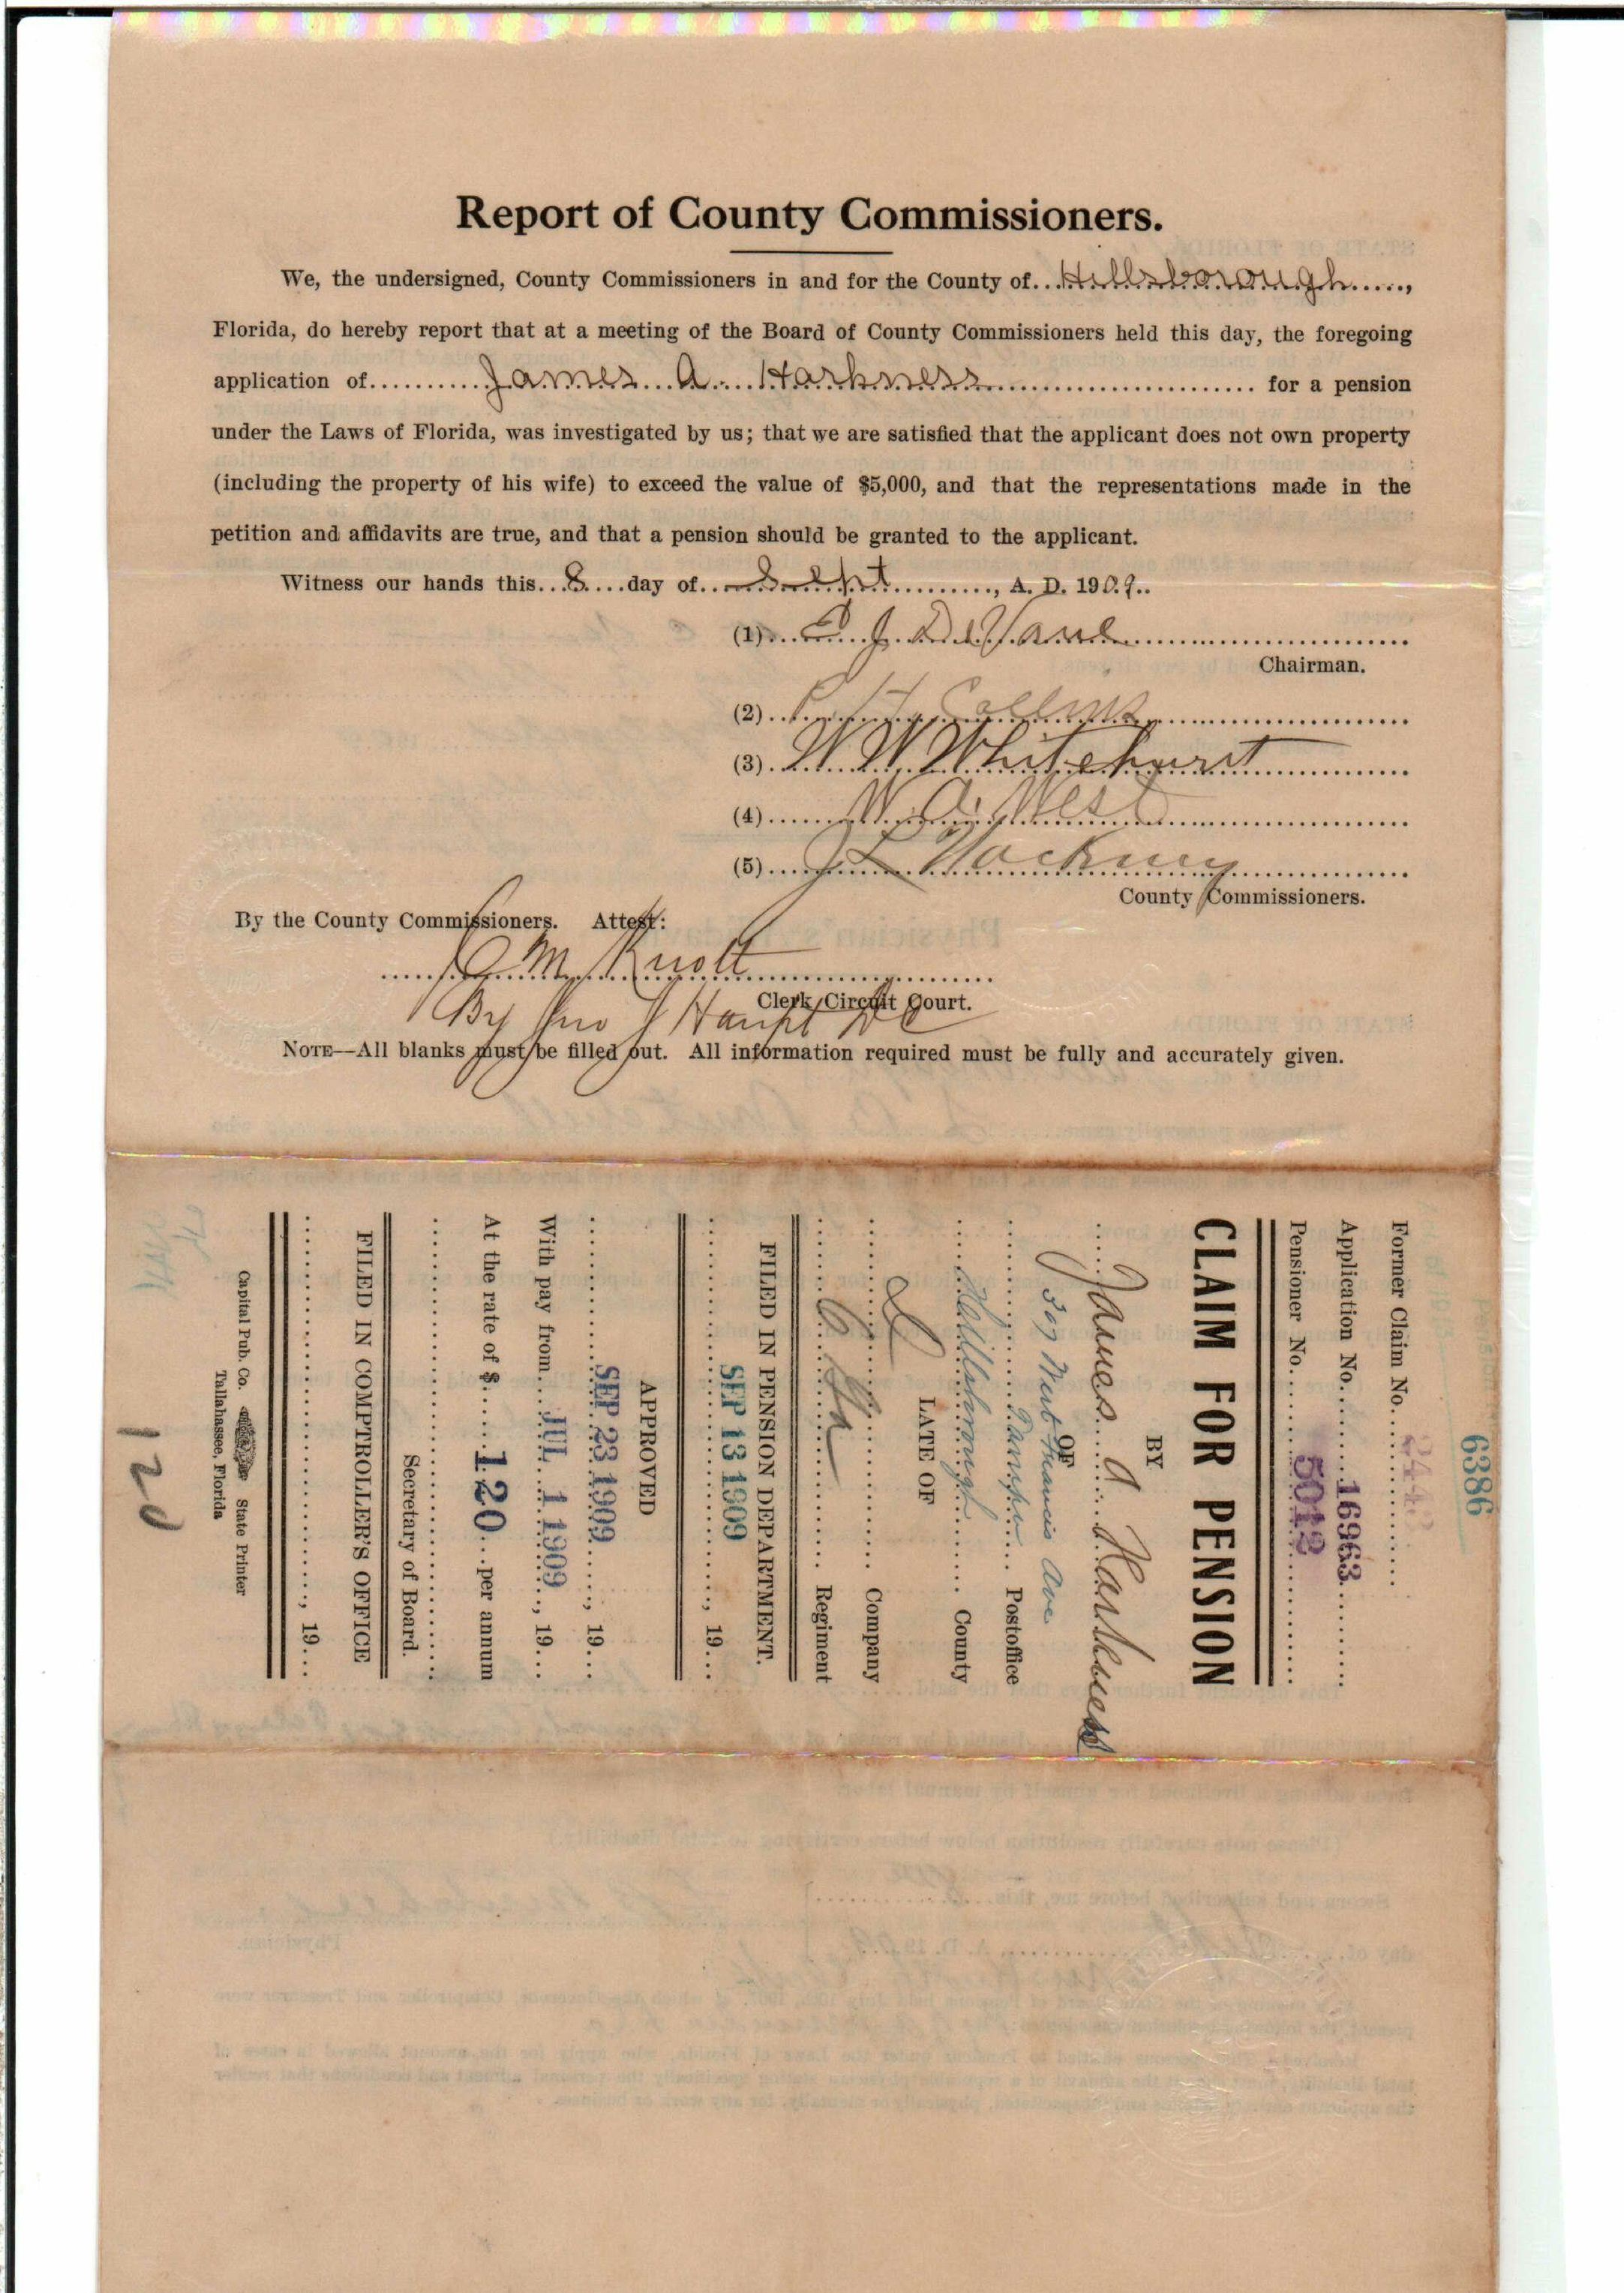 Report of County Commissioners.
We, the undersigned, County Commissioners in and for the County of Hillsborough,
Florida, do hereby report that at a meeting of the Board of County Commissioners held this day, the foregoing
application of James A. Harkness for a pension
under the Laws of Florida, was investigated by us; that we are satisfied that the applicant does not own property
(including the property of his wife) to exceed the value of $5,000, and that the representations made in the
petition and affidavits are true, and that a pension should be granted to the applicant.
Witness our hands this 8 day of Sept, A. D. 1909.
(1) J. DeVane
Chairman.
(2) Collins
(3) W W Whitehurst
(4) W. A. West
(5) J L Hackney
County Commissioners.
By the County Commissioners. Attest:
M. Knott
Clerk Circuit Court.
By Jno J Haupt DC
NOTE—All blanks must be filled out. All information required must be fully and accurately given.
6386
Former Claim No. 2443
Application No. 16963
Pensioner No. 5012
CLAIM FOR PENSION
BY
James A Harkness
OF
307 Francis Ave
Tampa Postoffice
Hillsborough County
LATE OF
Company
6 Ga Regiment
FILED IN PENSION DEPARTMENT.
SEP 13 1909, 19
APPROVED
SEP 23 1909, 19
With pay from JUL 1 1909, 19
At the rate of $ 120 per annum
Secretary of Board.
FILED IN COMPTROLLER'S OFFICE
, 19
Capital Pub. Co. State Printer
Tallahassee, Florida
120